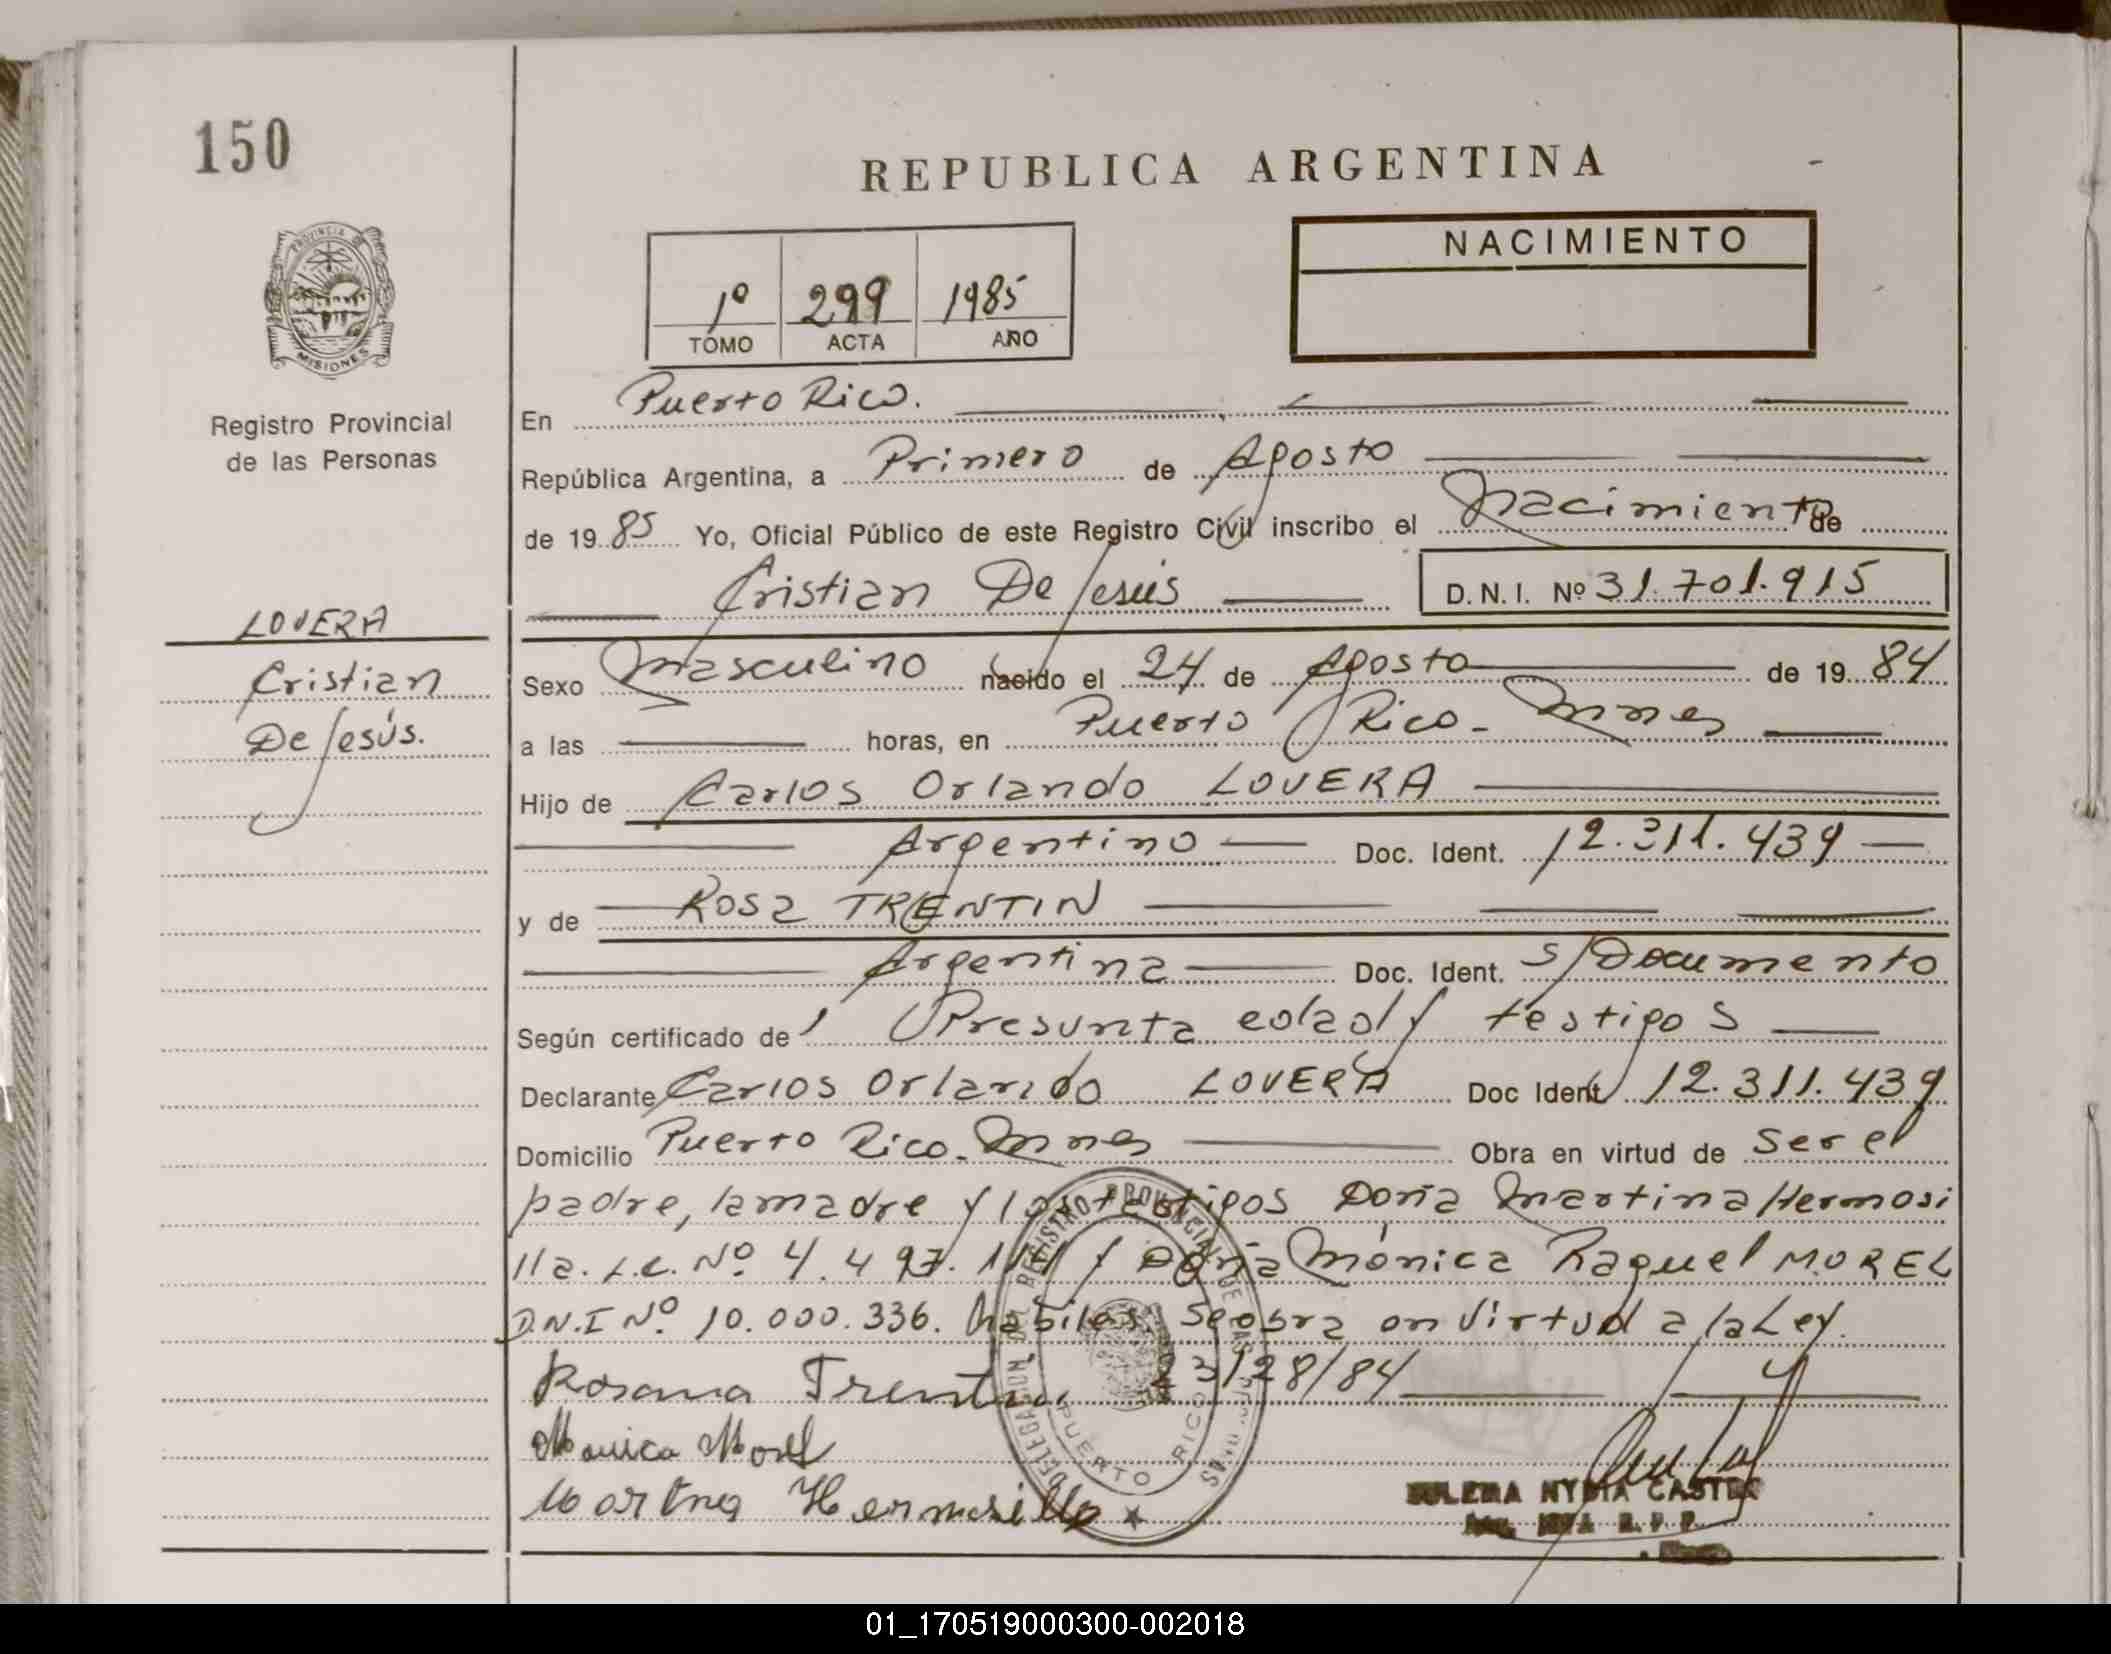 150
REPUBLICA ARGENTINA
NACIMIENTO
1º 299 1985
TOMO ACTA AÑO
PROVINCIA DE
MISIONES
Registro Provincial
de las Personas
LOVERA
Cristian
De Jesús.
En Puerto Rico.
República Argentina, a Primero de Agosto
de 1985 Yo, Oficial Público de este Registro Civil inscribo el Nacimiento de
Cristian De Jesús D.N.I. Nº 31.701.915
Sexo Masculino nacido el 24 de Agosto de 1984
a las horas, en Puerto Rico - Mnes
Hijo de Carlos Orlando LOVERA
Argentino Doc. Ident. 12.311.439
y de Rosa TRENTIN
Argentina Doc. Ident. S/Documento
Según certificado de Presunta edad y testigos
Declarante Carlos Orlando LOVERA Doc Ident 12.311.439
Domicilio Puerto Rico - Mnes Obra en virtud de Ser el
padre, la madre y los testigos Doña Martina Hermosi
lla. L.C. Nº 4.497. y Doña Mónica Raquel MOREL
D.N.I Nº 10.000.336. habiles. Se obra en Virtud a la Ley.
23/28/84
Rosana Trentin
Monica Morel
Martina Hermosilla
DELEGACION DEL REGISTRO PROVINCIAL DE LAS PERSONAS
PUERTO RICO
NYDIA
01_170519000300-002018